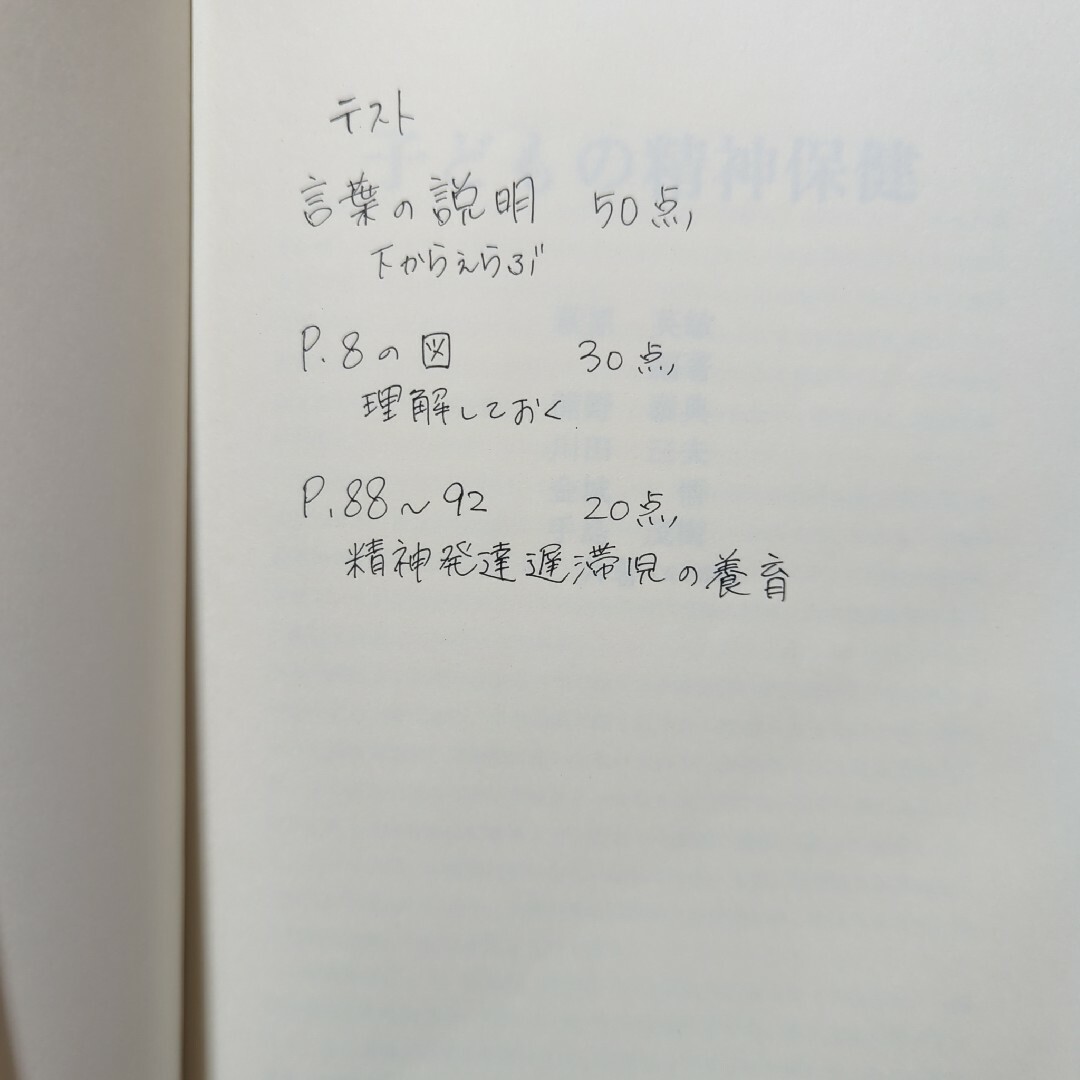 テスト
言葉の説明 50点
下からえらぶ
P.8の図 30点
理解しておく
P.88〜92 20点
精神発達遅滞児の養育
子どもの精神保健